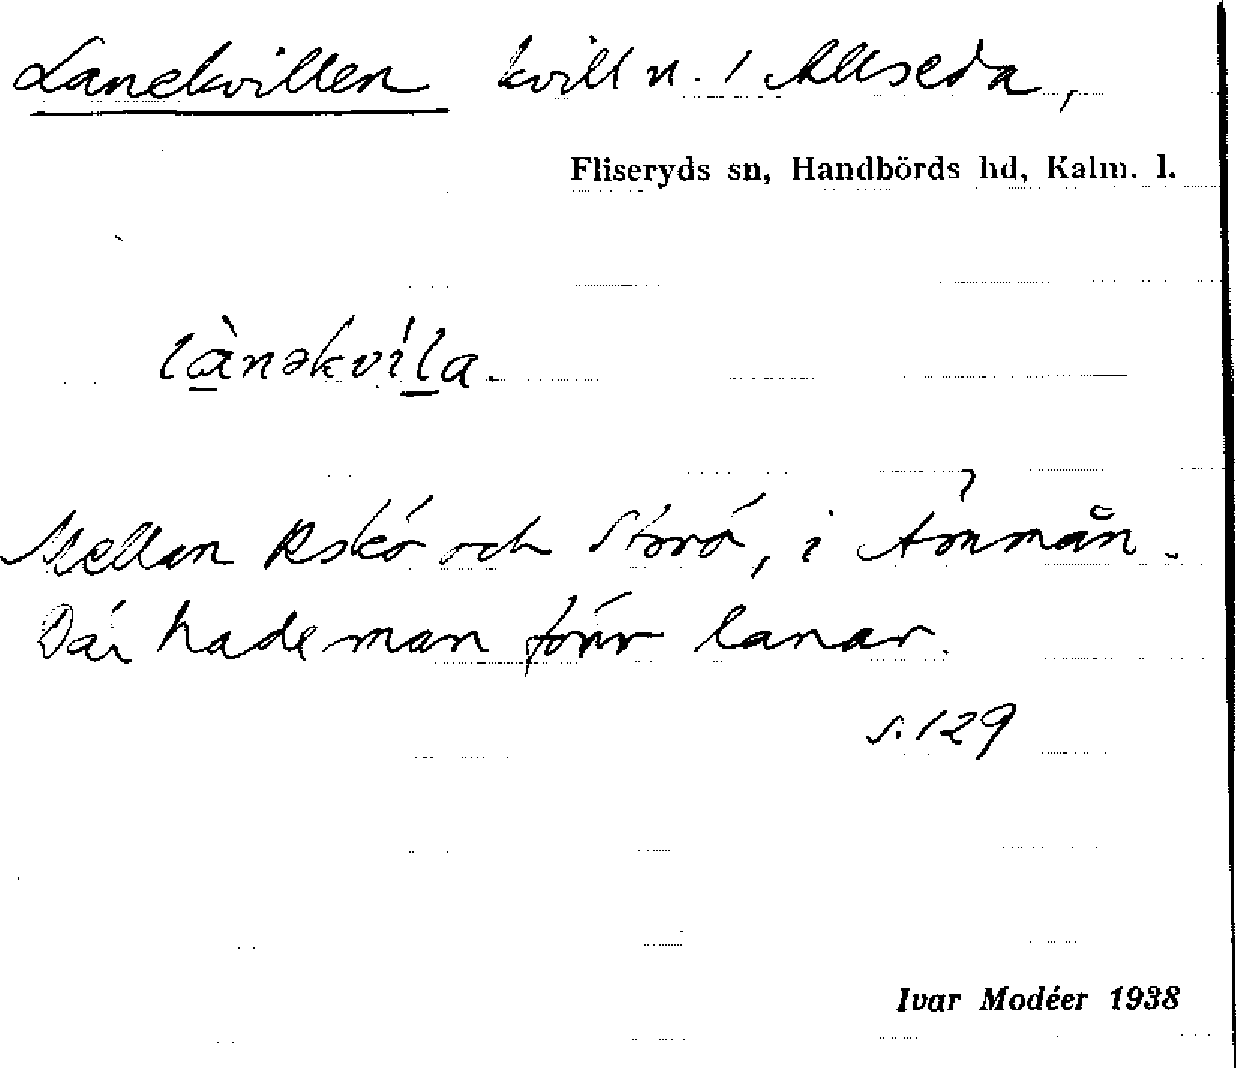 Lanekvillen kvill n. / Allseda,
Fliseryds sn, Handbörds hd, Kalm. l.
lànəkvíla.
Mellan Askö och Storö, i Ämmån.
Där hade man förr lanar.
s. 129
Ivar Modéer 1938